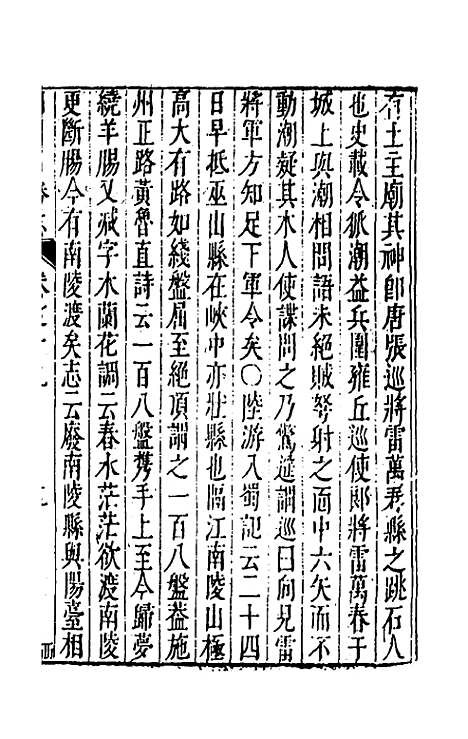 有土主廟其神即唐張巡將雷萬春縣之跳石人
也史載令狐潮益兵圍雍丘巡使郎將雷萬春于
城上與潮相問語未絕賊弩射之面中六矢而不
動潮疑其木人使諜問之乃驚遥謂巡曰向見雷
將軍方知足下軍令矣〇陸游入蜀記云二十四
日早抵巫山縣在峽中亦壯縣也隔江南陵山極
高大有路如綫盤屈至絕頂謂之一百八盤葢施
州正路黃魯直詩云一百八盤攜手上至今歸夢
繞羊腸又減字木蘭花調云春水茫茫欲渡南陵
更斷腸今有南陵渡矣志云廢南陵縣與陽臺相